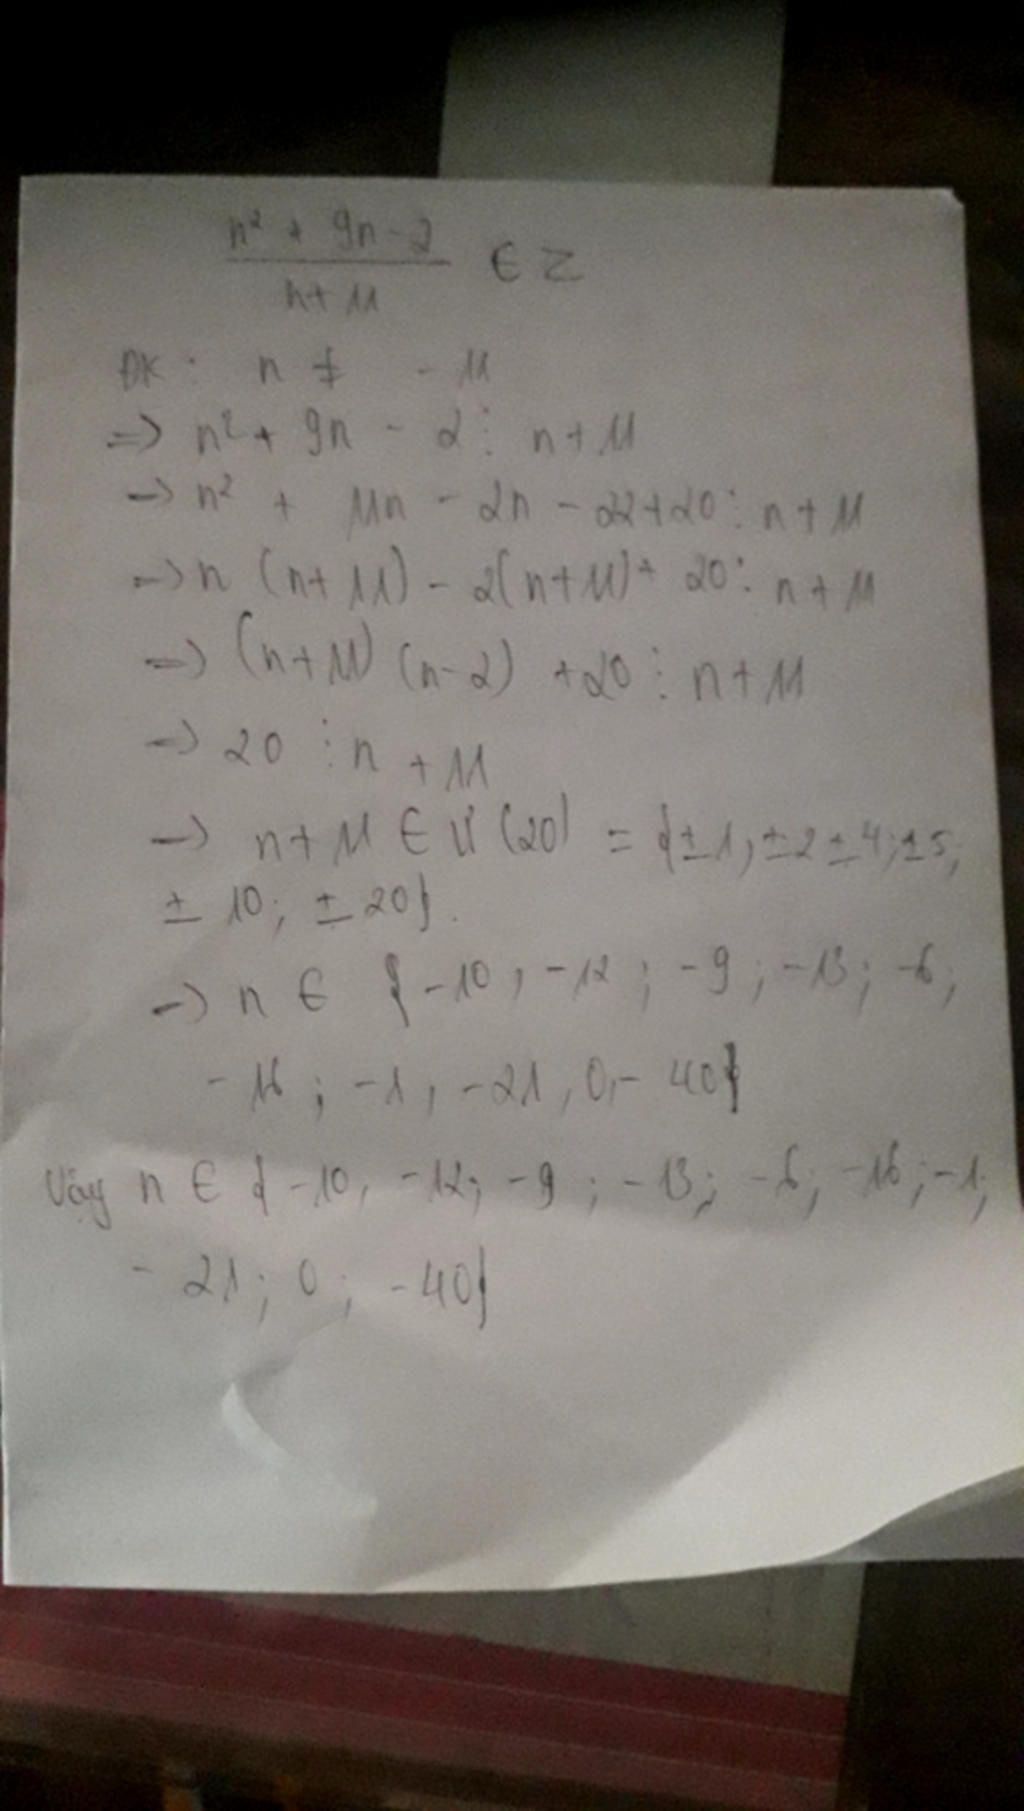 n² + 9n - 2
n + 11 ∈ Z
ĐK: n ≠ - 11
=> n² + 9n - 2 ⋮ n + 11
=> n² + 11n - 2n - 22 + 20 ⋮ n + 11
=> n (n + 11) - 2(n + 11) + 20 ⋮ n + 11
=> (n + 11) (n - 2) + 20 ⋮ n + 11
=> 20 ⋮ n + 11
=> n + 11 ∈ Ư (20) = {±1, ±2 ±4; ±5;
± 10; ± 20}.
=> n ∈ {-10, -12; -9; -13; -6;
-16; -1, -21, 0, -40}
Vậy n ∈ {-10, -12; -9; -13; -6; -16; -1;
- 21; 0; -40}